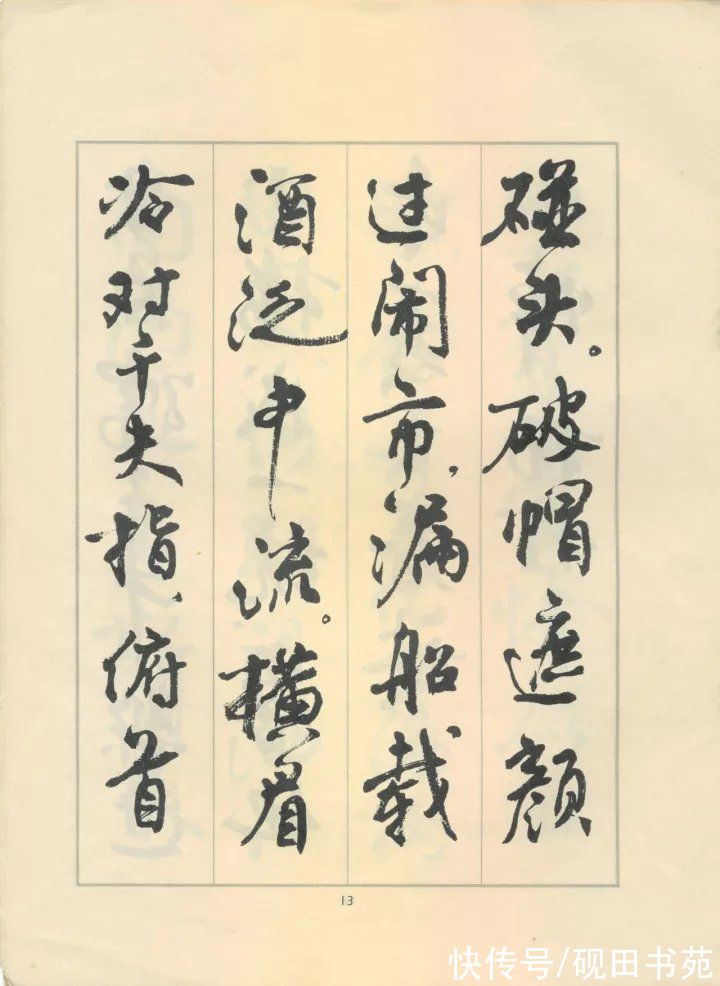 碰头。破帽遮颜
过闹市，漏船载
酒泛中流。横眉
冷对千夫指，俯首
13
快传号/砚田书苑